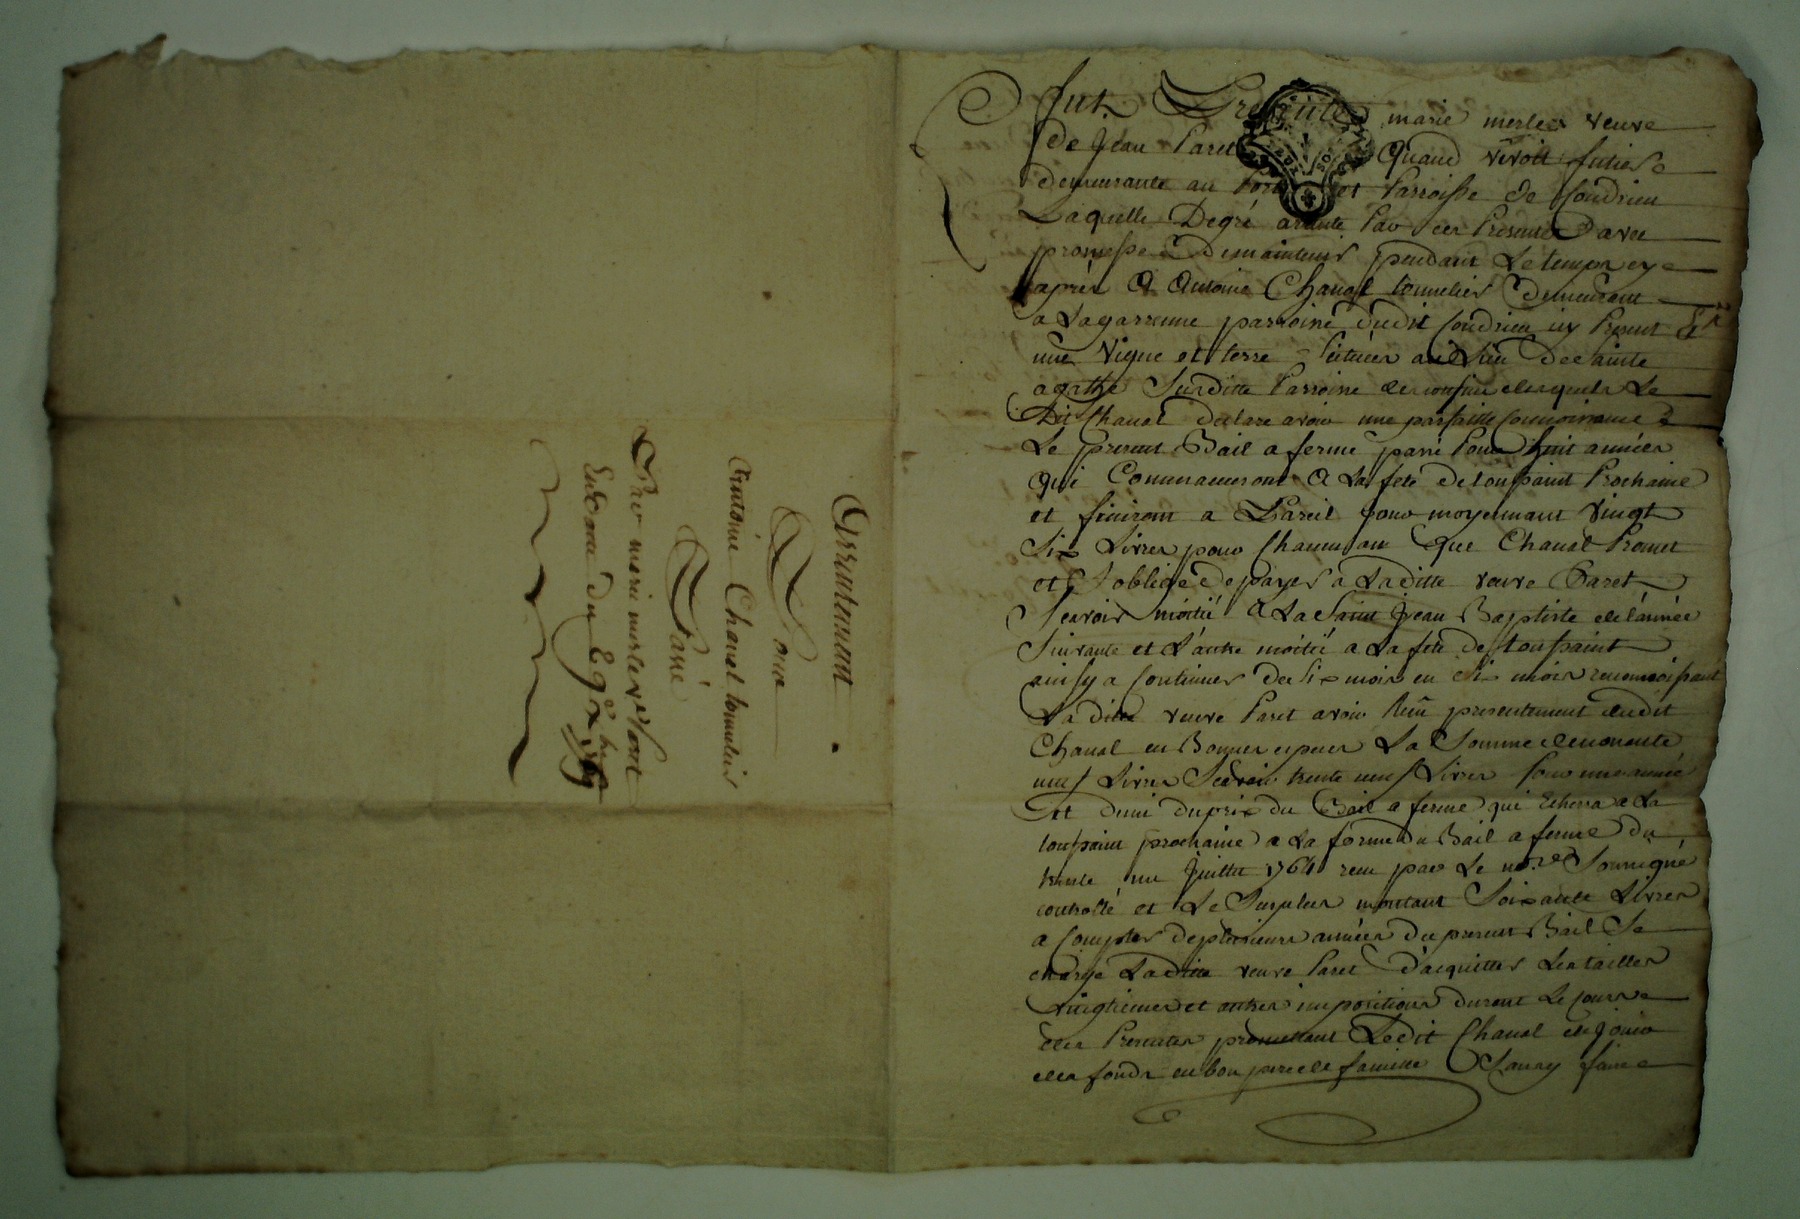 Arrentement
Pour
Antoine Chanal tonnelier
Passé
Par marie merle ve paret
En date du 8 9bre 1769
fut Presente marie merle veuve
de Jean Paret quand vivoit
demeurante au Port et Parroisse de Condrieu
Laquelle Degré arente Par ces Presente avec
promesse De maintenir pendant Le temps cy
après A Antoine Chanal tonnelier Demeurant
a Lagarenne parroine dudit Condrieu icy Present
une Vigne et terre situées au Lieu de sainte
agathe Suditte Parroine des confins desquels Le
Dit Chanal declare avoir une parfaitte connoissance
Le present Bail a ferme passé Pour huit années
Qui Commanceront A La fete de toussaint Prochaine
et finiront a Pareil jour moyennant Vingt
Six Livres pour Chacun an que Chanal Promet
et s'oblige de payer a Laditte veuve Paret
Scavoir moitié A La Saint Jean Baptiste de l'année
Suivante et L'autre moitié a La fete de toussaint
ainsy a Continuer de Six mois en Six mois
La ditte veuve Paret avoir presentement dudit
Chanal en Bonnes especes La Somme de nonante
neuf Livres Scavoir trente neuf Livres Pour une année
et demi du prix du Bail a ferme qui Echerra a La
toussaint prochaine a La forme du Bail a ferme du
trente un Juillet 1764 receu par Le nore Soussigné
controllé et Le Surplus montant Soixante Livres
a Compter de plusieurs années du present Bail Se
charge Laditte veuve Paret d'acquitter Les tailles
vingtiemes et autres impositions durant Le cours
des Presentes promettant Ledit Chanal de jouir
des fonds en bon pere de famille Sans y faire